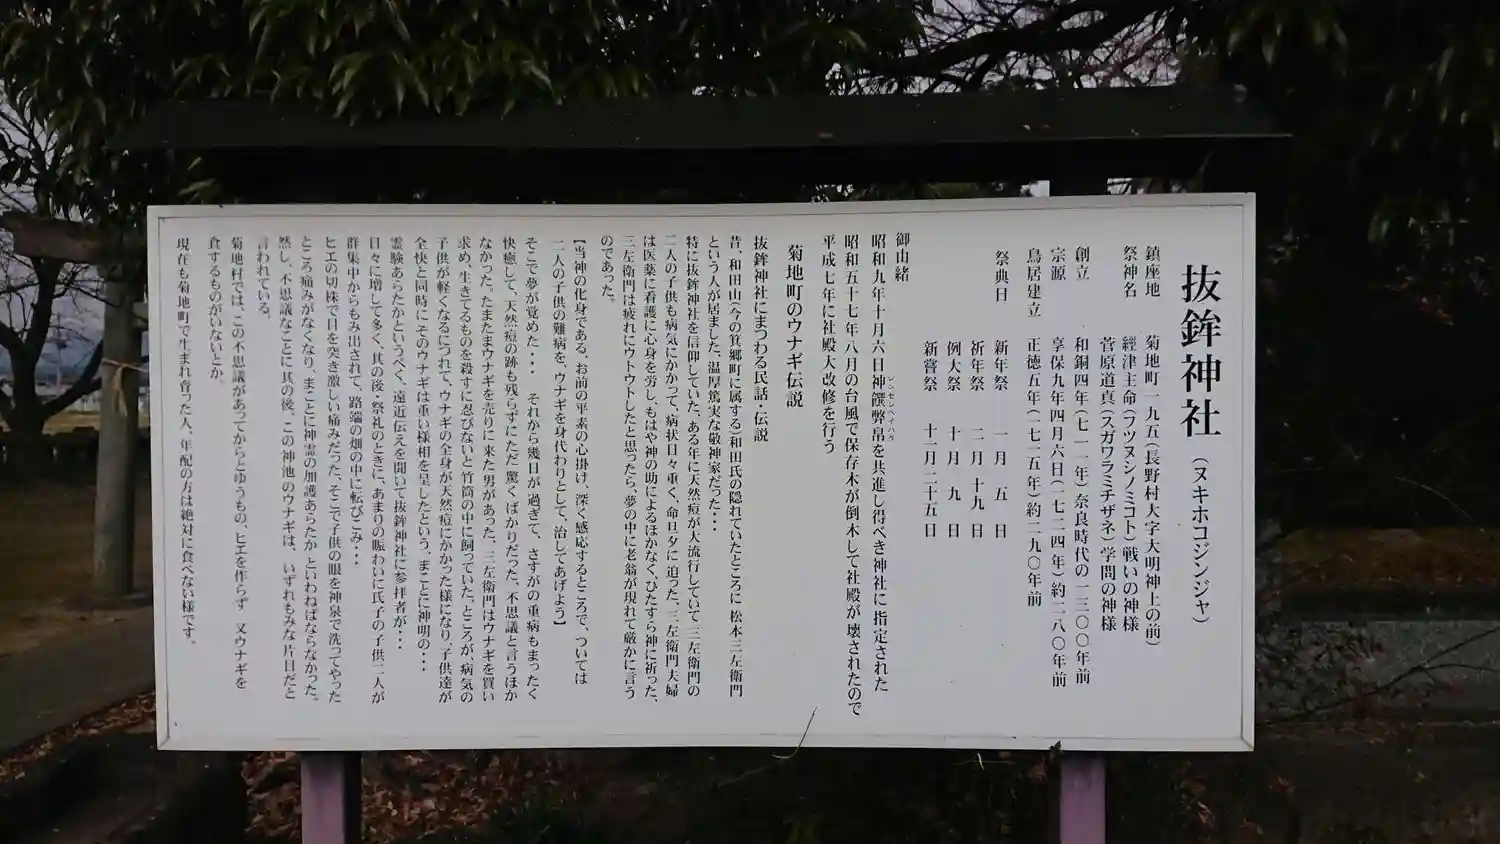 抜鉾神社（ヌキホコジンジャ）
鎮座地 菊地町一九五（長野村大字大明神上の前）
祭神名 經津主命（フツヌシノミコト）戦いの神様
菅原道真（スガワラミチザネ）学問の神様
創立 和銅四年（七一一年）奈良時代の一三〇〇年前
宗源 享保九年四月六日（一七二四年）約二八〇年前
鳥居建立 正徳五年（一七一五年）約二九〇年前
祭典日 新年祭 一月 五 日
祈年祭 二月 十九 日
例大祭 十月 九 日
新嘗祭 十一月二十五日
御由緒
昭和九年十月六日神饌弊帛を共進し得べき神社に指定された
シンセンヘイハク
昭和五十七年八月の台風で保存木が倒木して社殿が壊されたので
平成七年に社殿大改修を行う
菊地町のウナギ伝説
抜鉾神社にまつわる民話・伝説
昔、和田山（今の箕郷町に属する）和田氏の隠れていたところに 松本三左衛門
という人が居ました、温厚篤実な敬神家だった・・・
特に抜鉾神社を信仰していた、ある年に天然痘が大流行していて、三左衛門の
二人の子供も病気にかかって、病状日々重く、命旦夕に迫った、三左衛門夫婦
は医薬に看護に心身を労し、もはや神の助によるほかなく、ひたすら神に祈った、
三左衛門は疲れにウトウトしたと思ったら、夢の中に老翁が現れて厳かに言う
のであった。
【当神の化身である、お前の平素の心掛け、深く感応するところで、ついては
二人の子供の難病を、ウナギを身代わりとして、治してあげよう】
そこで夢が覚めた・・・ それから幾日が過ぎて、さすがの重病もまったく
快癒して、天然痘の跡も残らずにただ驚くばかりだった、不思議と言うほか
なかった。たまたまウナギを売りに来た男があった、三左衛門はウナギを買い
求め、生きてるものを殺すに忍びないと竹筒の中に飼っていた。ところが、病気の
子供が軽くなるにつれて、ウナギの全身が天然痘にかかった様になり、子供達が
全快と同時に そのウナギは重い様相を呈したという、まことに神明の・・・
霊験あらたかというべく、遠近伝えを聞いて抜鉾神社に参拝者が・・・
日々に増して多く、其の後・祭礼のときに、あまりの賑わいに氏子の子供二人が
群集中からもみ出されて、路端の畑の中に転びこみ・・・
ヒエの切株で目を突き激しい痛みだった、そこで子供の眼を神泉で洗ってやった
ところ痛みがなくなり、まことに神霊の加護あらたかといわねばならなかった。
然し、不思議なことに其の後、この神池のウナギは、いずれもみな片目だと
言われている。
菊地村では、この不思議があってからとゆうもの、ヒエを作らず 又ウナギを
食するものがいないとか。
現在も菊地町で生まれ育った人、年配の方は絶対に食べない様です。